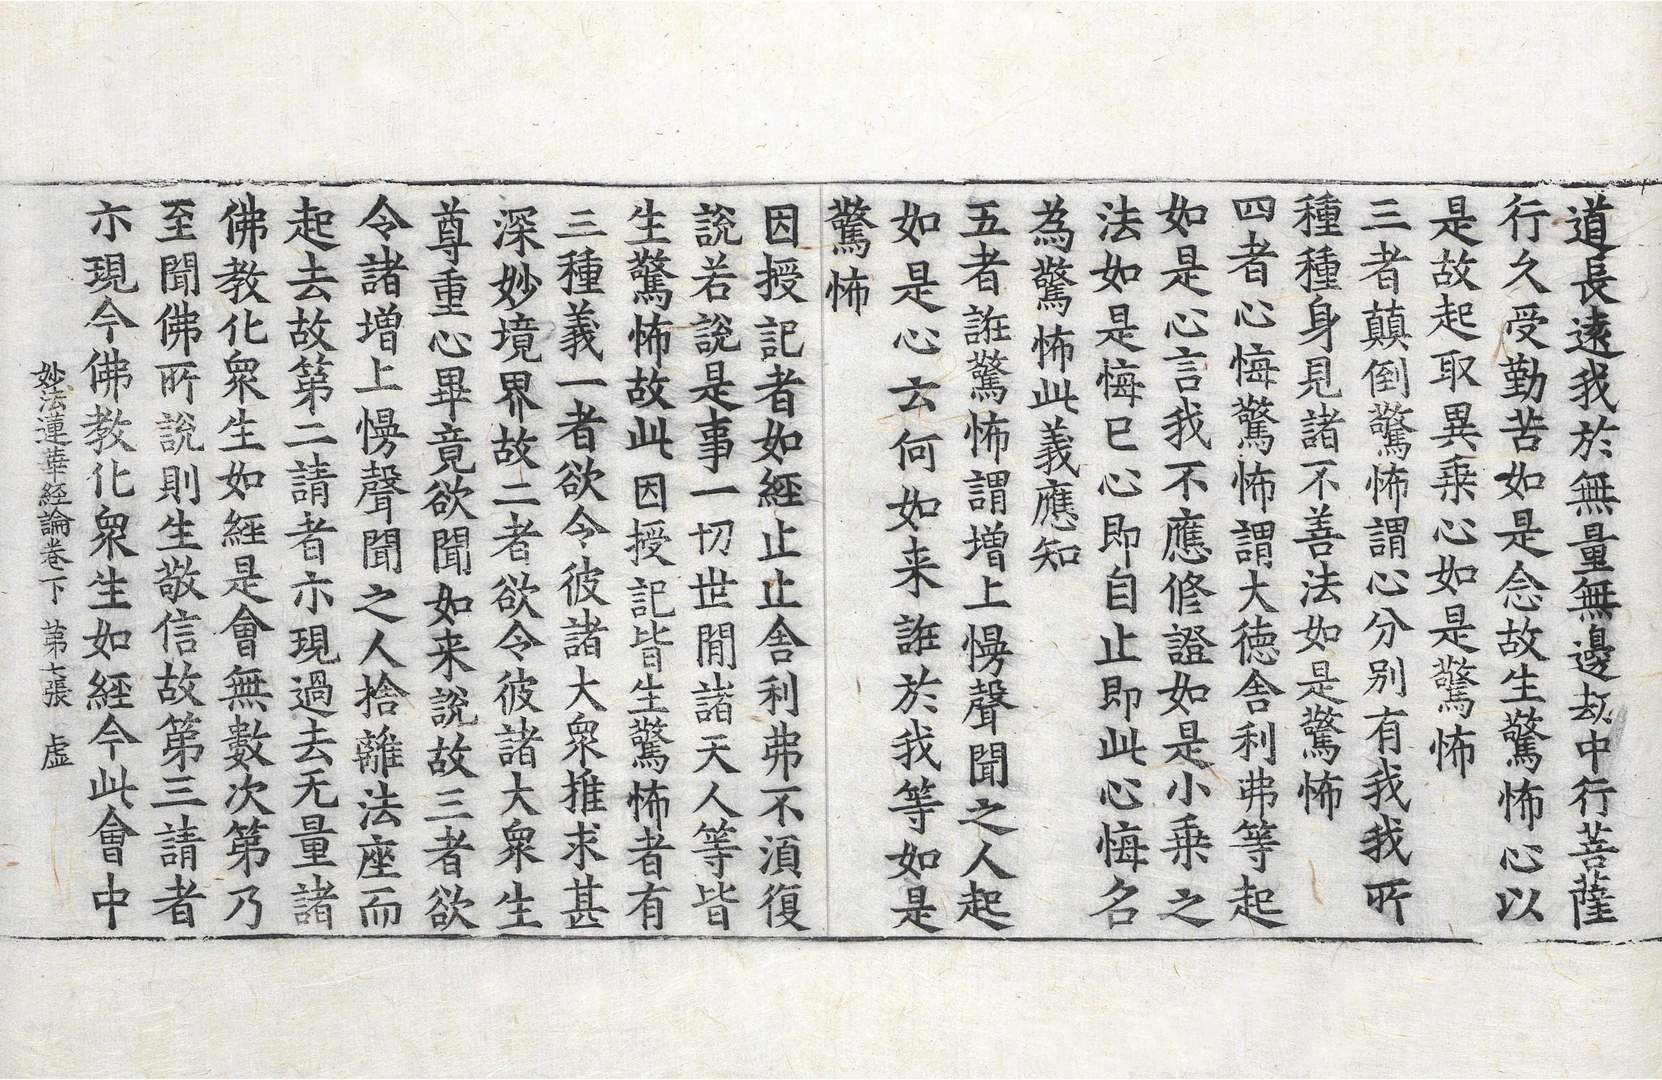 道長遠我於無量無邊劫中行菩薩
行久受勤苦如是念故生驚怖心以
是故起取異乗心如是驚怖
三者顛倒驚怖謂心分别有我我所
種種身見諸不善法如是驚怖
四者心悔驚怖謂大德舎利弗等起
如是心言我不應修證如是小乗之
法如是悔已心即自止即此心悔名
為驚怖此義應知
五者誑驚怖謂增上慢聲聞之人起
如是心云何如来誑於我等如是
驚怖
因授記者如經止止舎利弗不湏復
說若說是事一切世間諸天人等皆
生驚怖故此因授記皆生驚怖者有
三種義一者欲令彼諸大衆推求甚
深妙境界故二者欲令彼諸大衆生
尊重心畢竟欲聞如来說故三者欲
令諸增上慢聲聞之人捨離法座而
起去故第二請者亦現過去无量諸
佛教化衆生如經是會無數次第乃
至聞佛所說則生敬信故第三請者
亦現今佛教化衆生如經今此會中
妙法蓮華經論卷下 第七張 虛